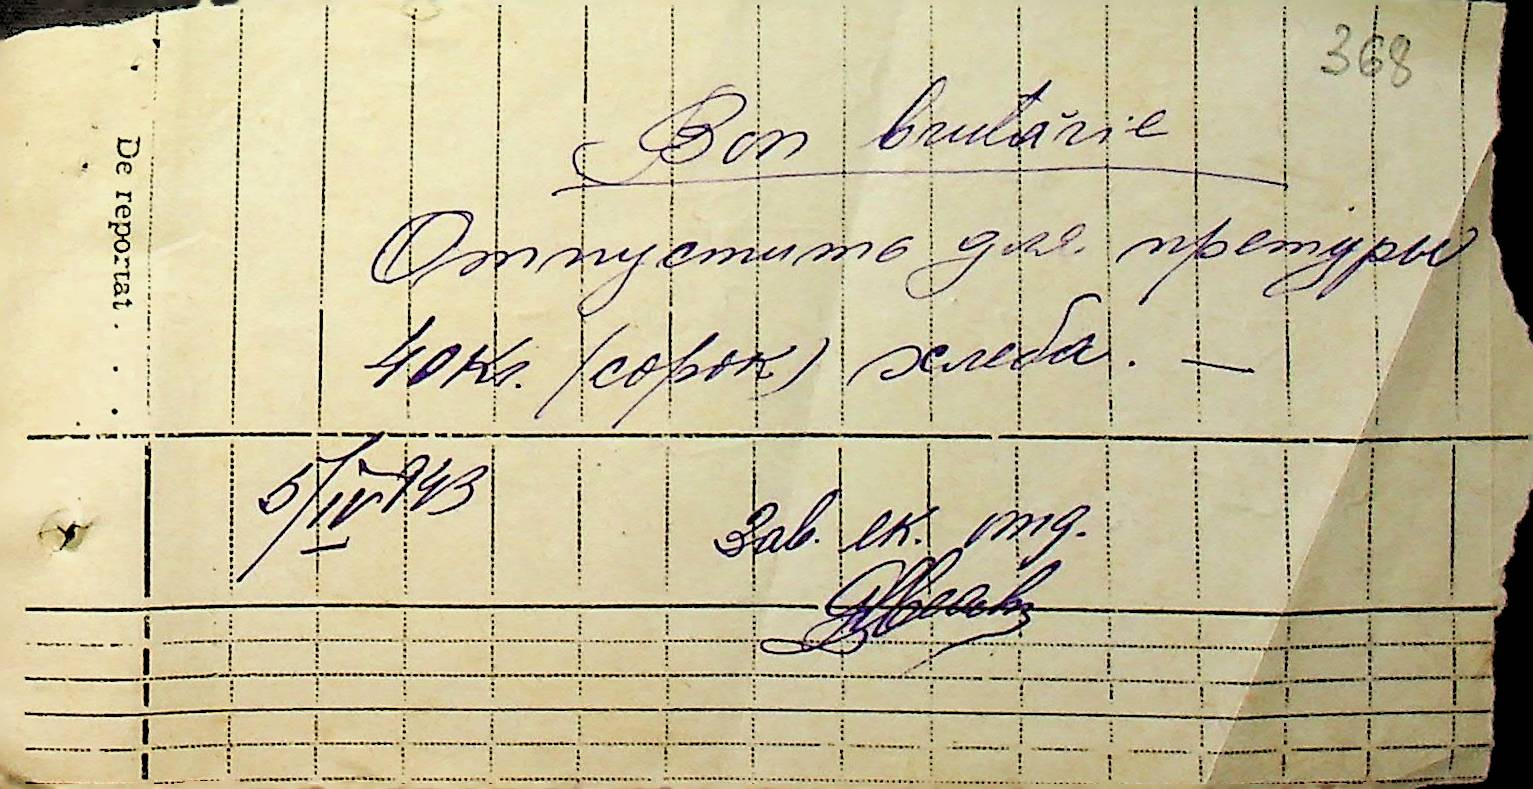 368
Bon brutărie
Отпустить для претуры
40 кг. (сорок) хлеба. —
5/IV 943
Зав. ек. отд.
De reportat . . .